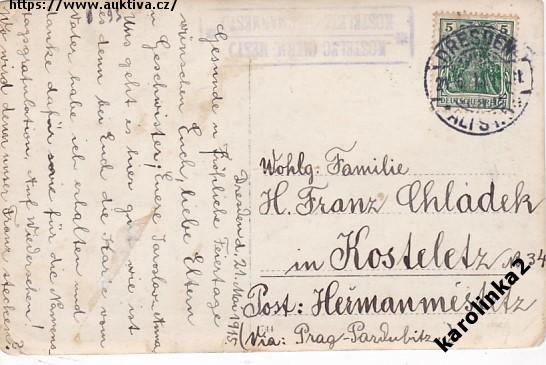 https://www.auktiva.cz/
Gesunde u. fröhliche Feiertage
wünschen Euch, liebe Eltern
u. Geschwister, Euere Jaroslav Anna
Uns geht es hier gut, wie ist
es denn bei Euch, die Karte vom
Vater habe ich erhalten und
danke dafür sowie für die Namens-
tagsgratulation, Auf Wiedersehen!
wird denn unser Franz stecken?
Dresden d. 21. Mai 1915.
KOSTELEC
5 5
DRESDEN
ALTST.
DEUTSCHES REICH
Wohlg: Familie
H. Franz Chládek
in Kosteletz N. 34
Post: Heřmanměstetz
(Via: Prag-Pardubitz
karolinka2